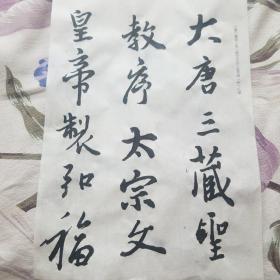 大唐三藏聖
教序太宗文
皇帝製弘福